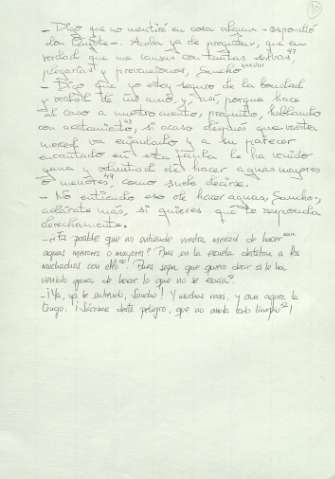 - Digo que no mentiré en cosa alguna - respondió
don Quijote -. Acaba ya de preguntar, que en
verdad que me cansas con tantas salvas,
plegarias y prevenciones, Sancho
- Digo que yo estoy seguro de la bondad
y verdad de mi amo y así, porque hace
al caso a nuestro cuento, pregunto, hablando
con acatamiento, si acaso después que vuestra
merced va enjaulado y a su parecer
encantado en esta jaula le ha venido
gana y voluntad de hacer aguas mayores
o menores, como suele decirse.
- No entiendo eso de hacer aguas, Sancho;
aclárate más, si quieres que te responda
derechamente.
- ¿Es posible que no entiende vuestra merced de hacer
aguas menores o mayores? Pues en la escuela destetan a los
muchachos con ello. Pues sepa que quiero decir si le ha
venido gana de hacer lo que no se escusa.
- ¡Ya, ya te entiendo, Sancho! Y muchas veces, y aun agora la
tengo. ¡Sácame deste peligro, que no anda todo limpio!